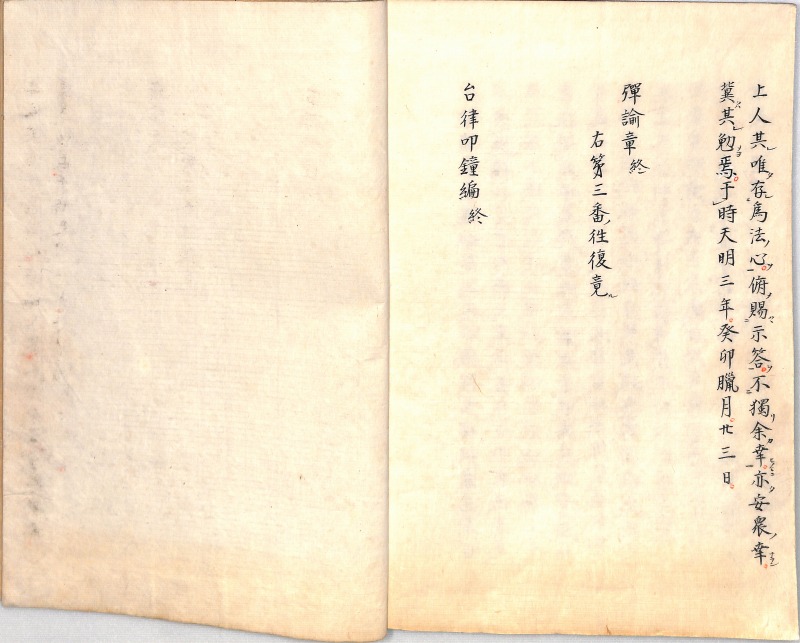 上人其唯存為法心俯賜示答不獨余幸亦安衆幸
冀其勉焉于時天明三年癸卯臘月廿三日
彈諭章終
右第三番往復竟
台律叩鐘編終